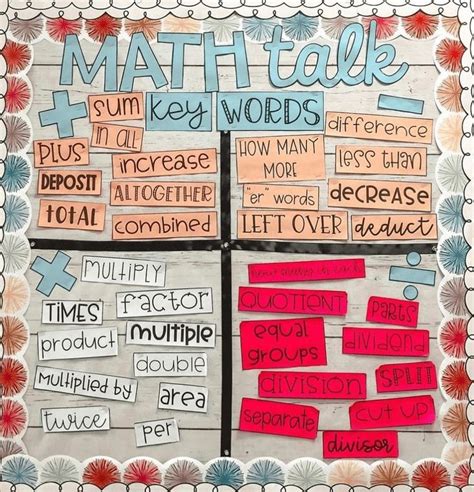 MATH talk
KEY WORDS
sum
in all
PLUS
increase
DEPOSIT
ALTOGETHER
TOTAL
combined
difference
HOW MANY MORE
less than
"er" words
decrease
LEFT OVER
deduct
MULTIPLY
TIMES
factor
product
multiple
double
multiplied by
area
twice
per
how many in each
QUOTIENT
parts
equal groups
dividend
division
SPLIT
separate
CUT UP
divisor